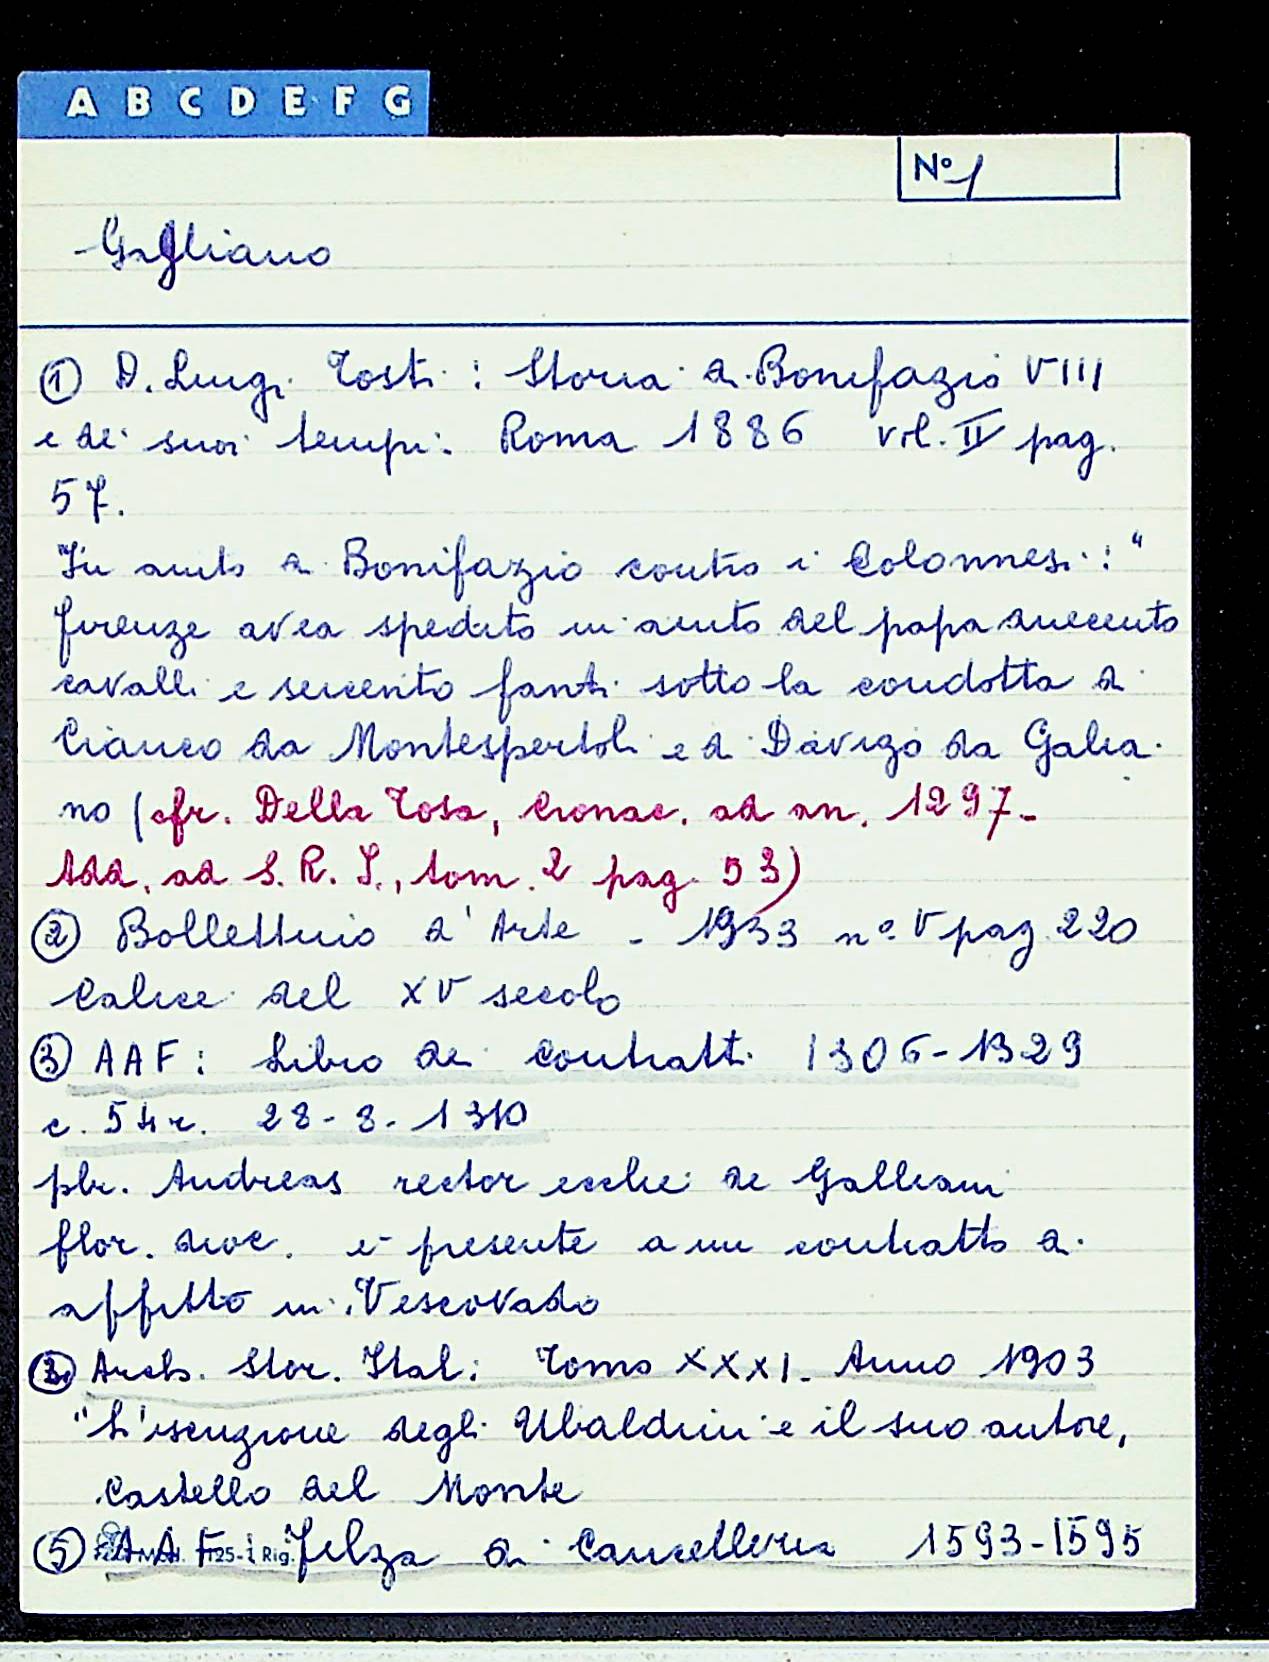 A B C D E F G
N° 1
Gagliano
① D. Luigi Tosti: Storia di Bonifazio VIII
e dei suoi tempi: Roma 1886 vol. II pag.
57.
"In aiuto di Bonifazio contro i Colonnesi:"
Firenze avea spedito in aiuto del papa duecento
cavalli e seicento fanti sotto la condotta di
Cianco da Montespertoli e di Davizo da Galia-
no (cfr. Della Tosa, Cronac. ad an. 1297-
Add. ad S. R. I., tom. 2 pag. 53)
② Bollettino d'Arte - 1933 n°. V pag. 220
Calice del XV secolo
③ AAF: Libro dei contratti 1306-1329
c. 54 r. 28-8-1310
pbr. Andreas rector ecclie de Galliani
flor. dioc. è presente a un contratto di
affitto in Vescovado
Arch. Stor. Ital: Tomo XXXI. Anno 1903
"L'iscrizione degli Ubaldini e il suo autore,
Castello del Monte
⑤ AAF: Filza di Cancelleria 1593-1595
125-1 Rig.